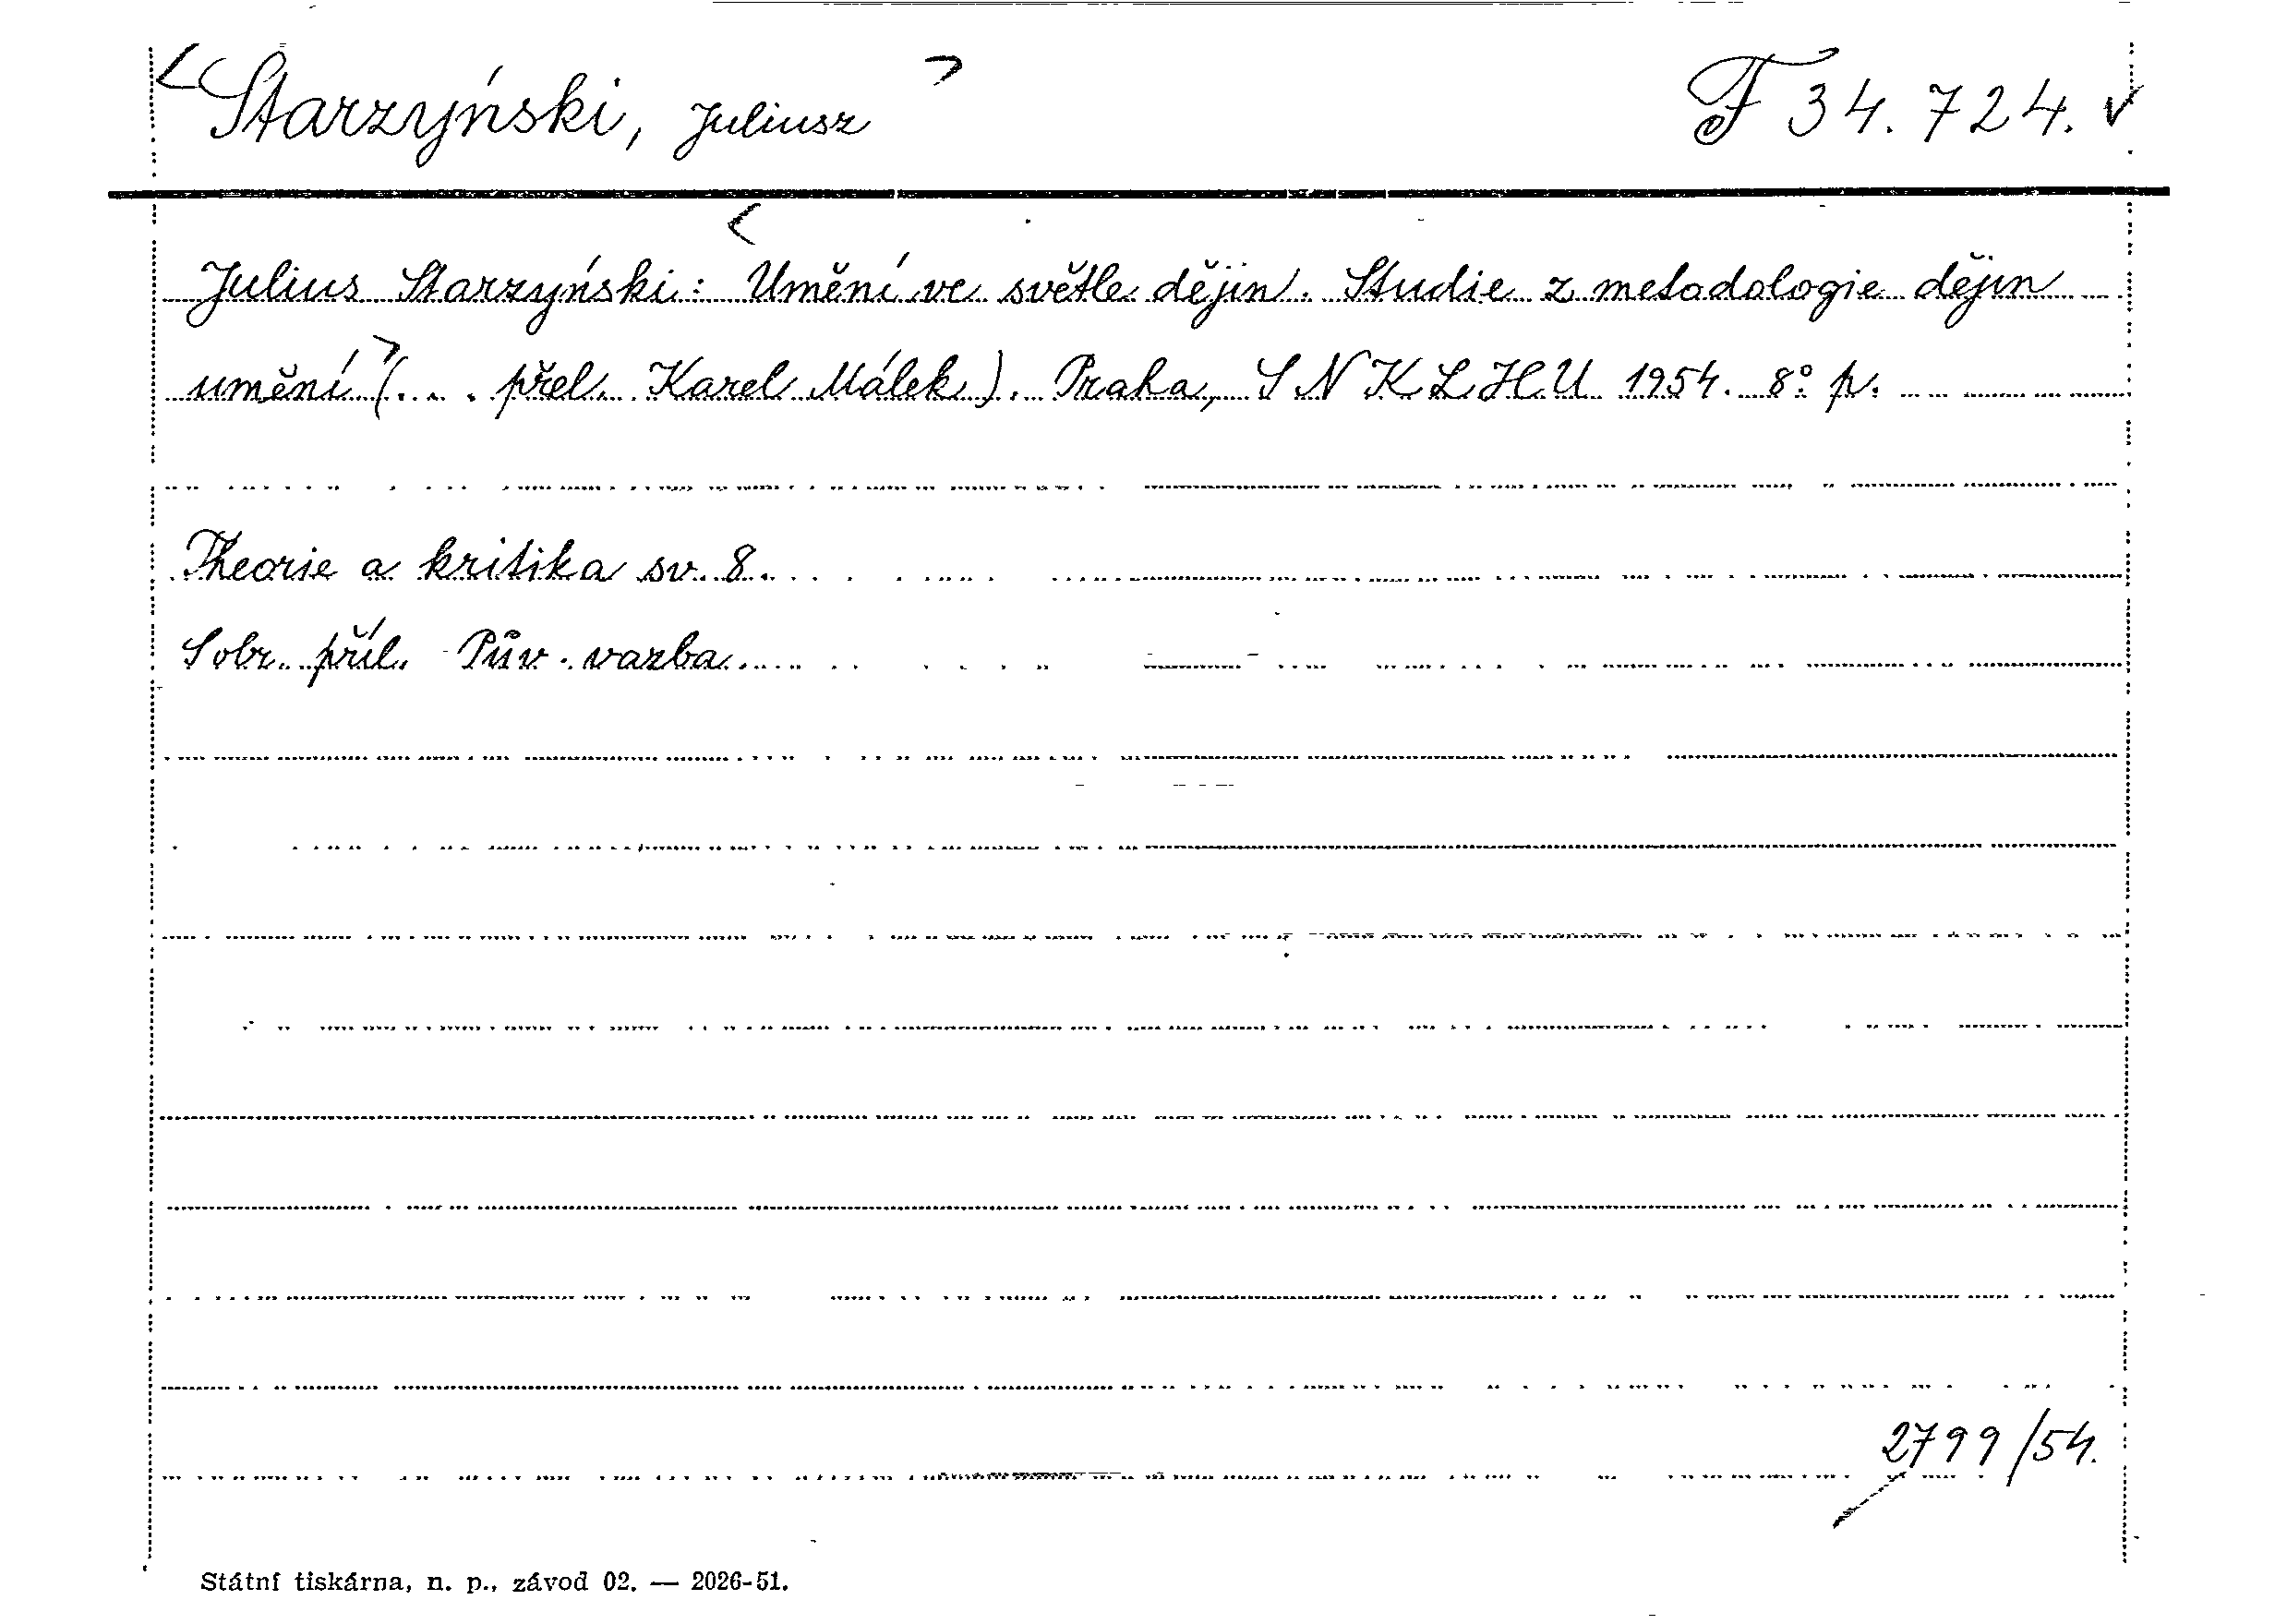 <Starzyński, Juliusz> F 34.724. v
Julius Starzyński: <Umění ve světle dějin. Studie z metodologie dějin
umění> (... přel. Karel Málek). Praha, SNKLHU 1954. 8° p.
Theorie a kritika sv. 8.
Sobr. příl. Pův. vazba.
2799/54.
Státní tiskárna, n. p., závod 02. — 2026-51.